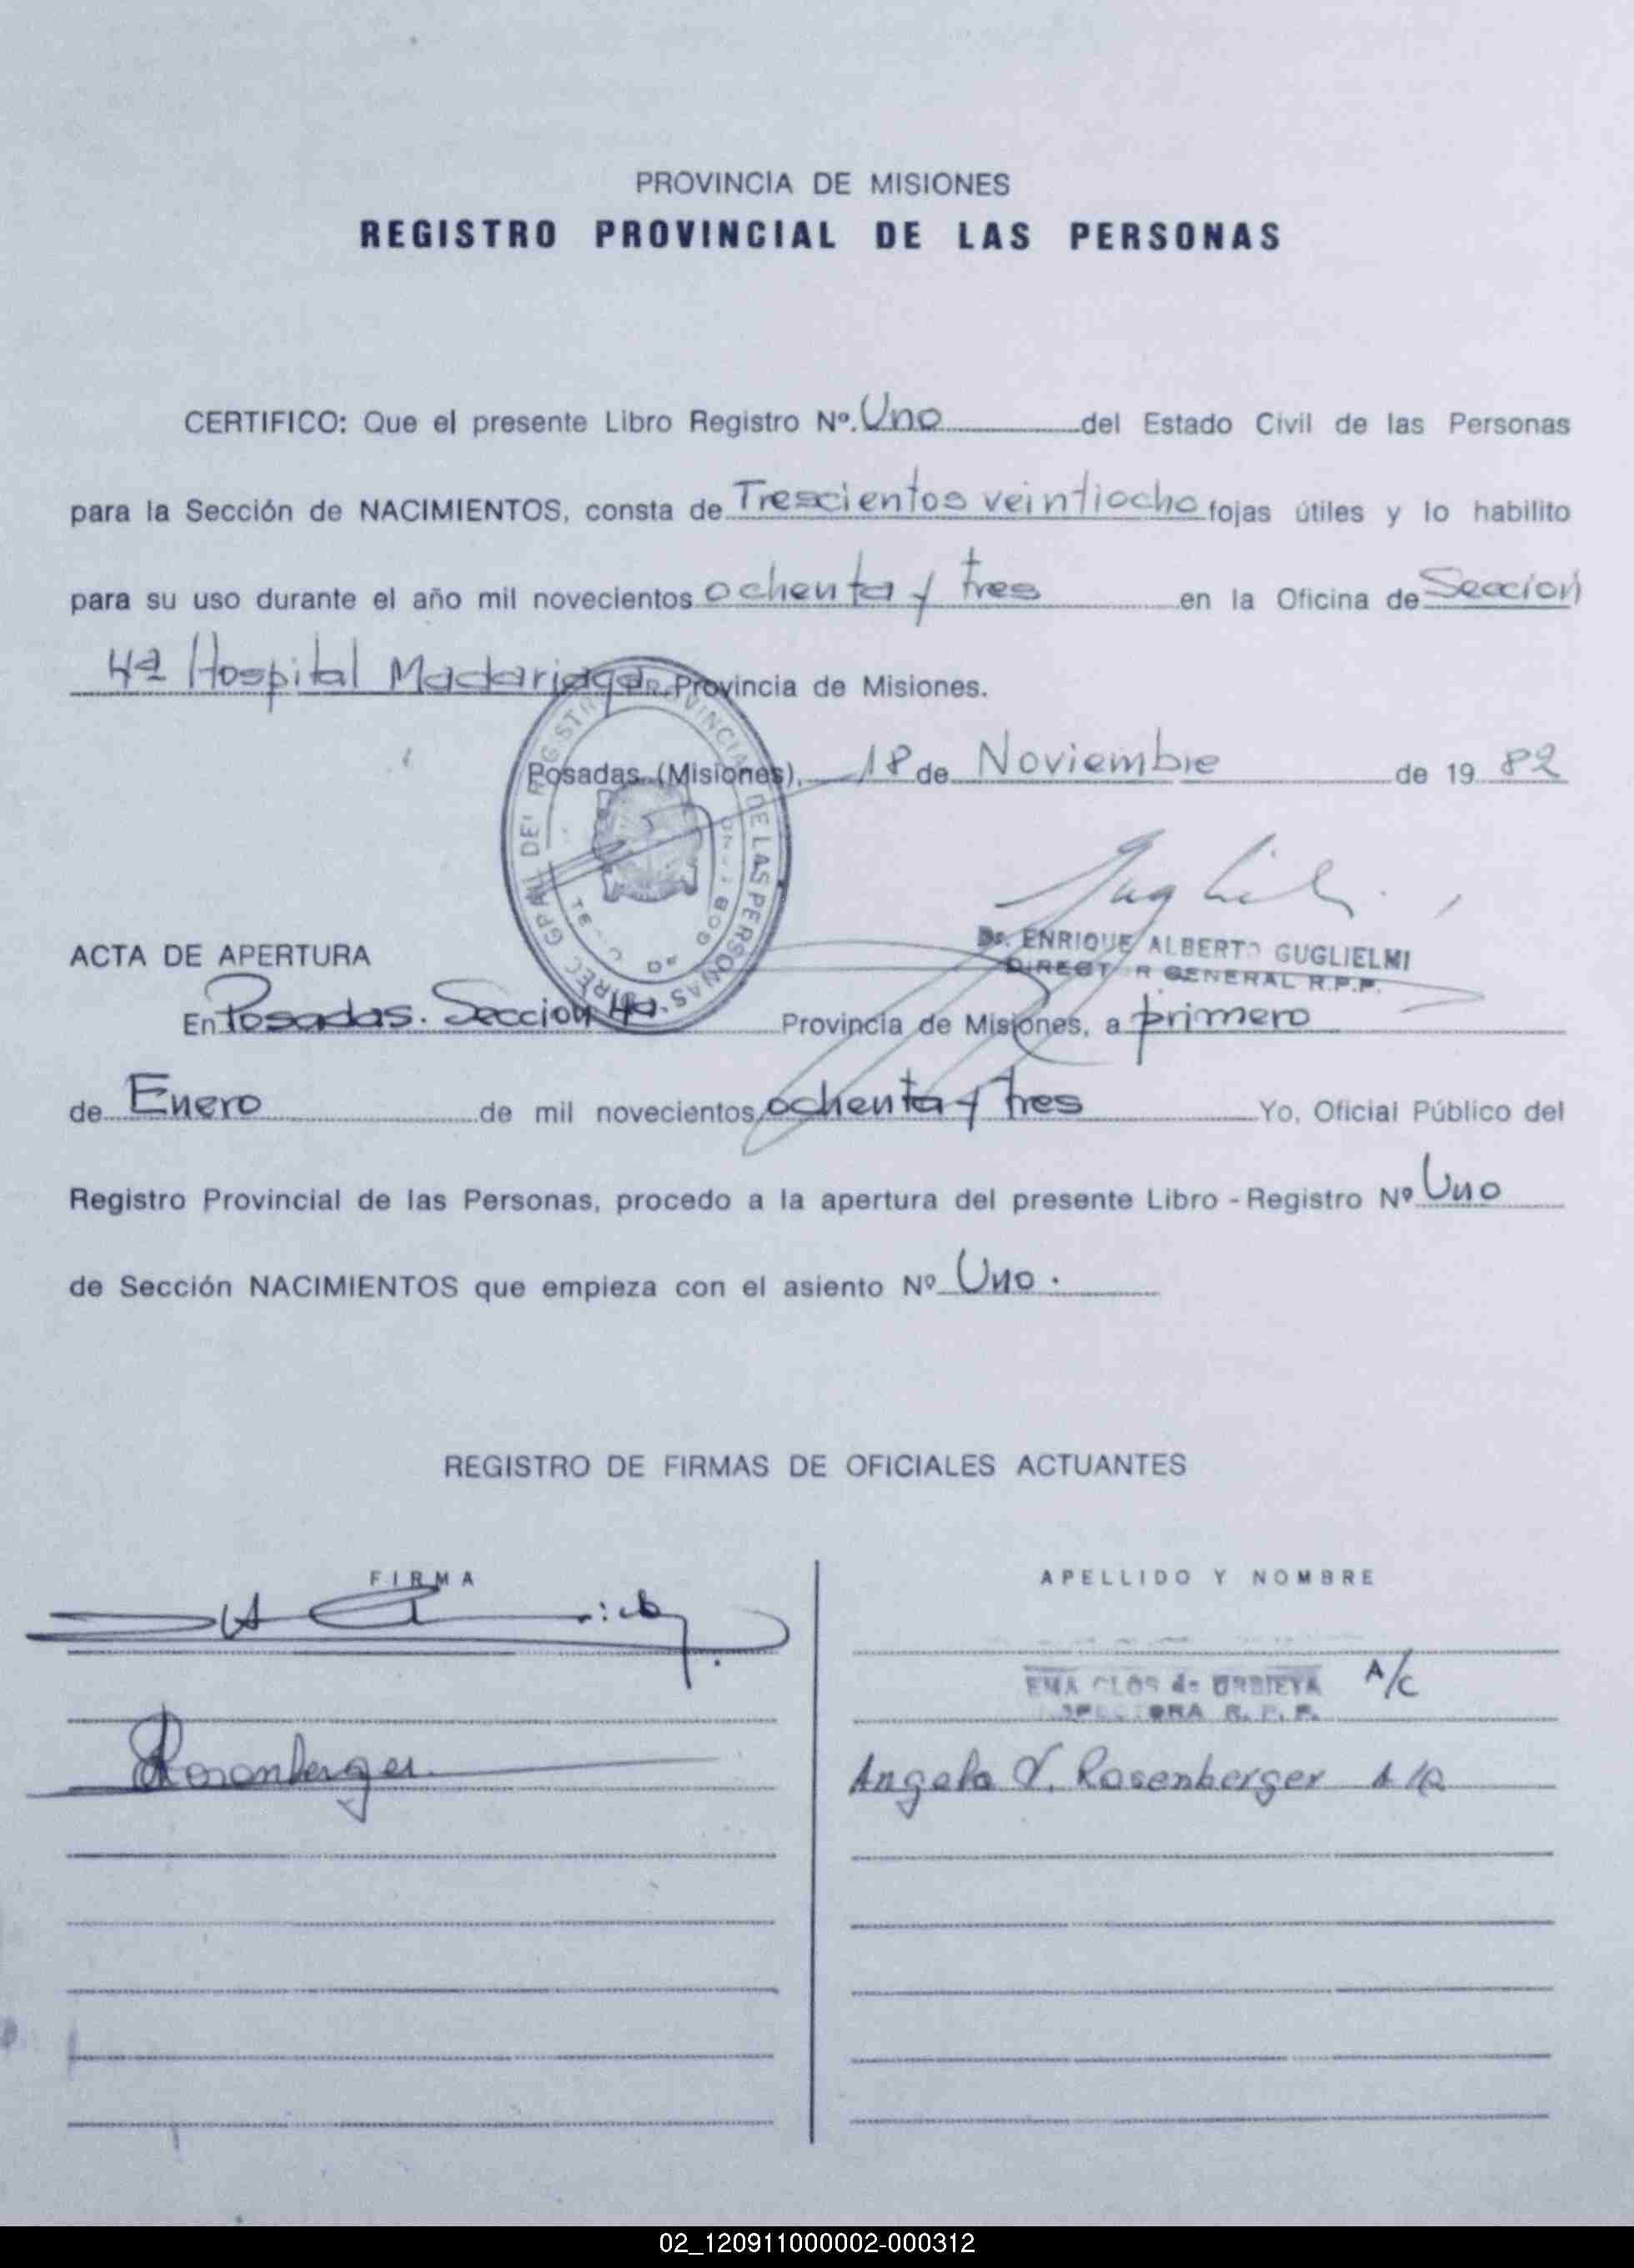 PROVINCIA DE MISIONES
REGISTRO PROVINCIAL DE LAS PERSONAS
CERTIFICO: Que el presente Libro Registro Nº. Uno del Estado Civil de las Personas
para la Sección de NACIMIENTOS, consta de Trescientos veintiocho fojas útiles y lo habilito
para su uso durante el año mil novecientos ochenta y tres en la Oficina de Seccion
4ª Hospital Madariaga Provincia de Misiones.
Posadas (Misiones), 18 de Noviembre de 19 82
DE LAS PERSONAS
Dr. ENRIQUE ALBERTO GUGLIELMI
DIRECTOR GENERAL R.P.P.
ACTA DE APERTURA
En Posadas. Seccion 4ª. Provincia de Misiones, a primero
de Enero de mil novecientos ochenta y tres Yo, Oficial Público del
Registro Provincial de las Personas, procedo a la apertura del presente Libro - Registro Nº Uno
de Sección NACIMIENTOS que empieza con el asiento Nº Uno.
REGISTRO DE FIRMAS DE OFICIALES ACTUANTES
FIRMA APELLIDO Y NOMBRE
EMA CLOS de URBIETA A/C
R. P. P.
Rosenberger Angela V. Rosenberger
02_120911000002-000312